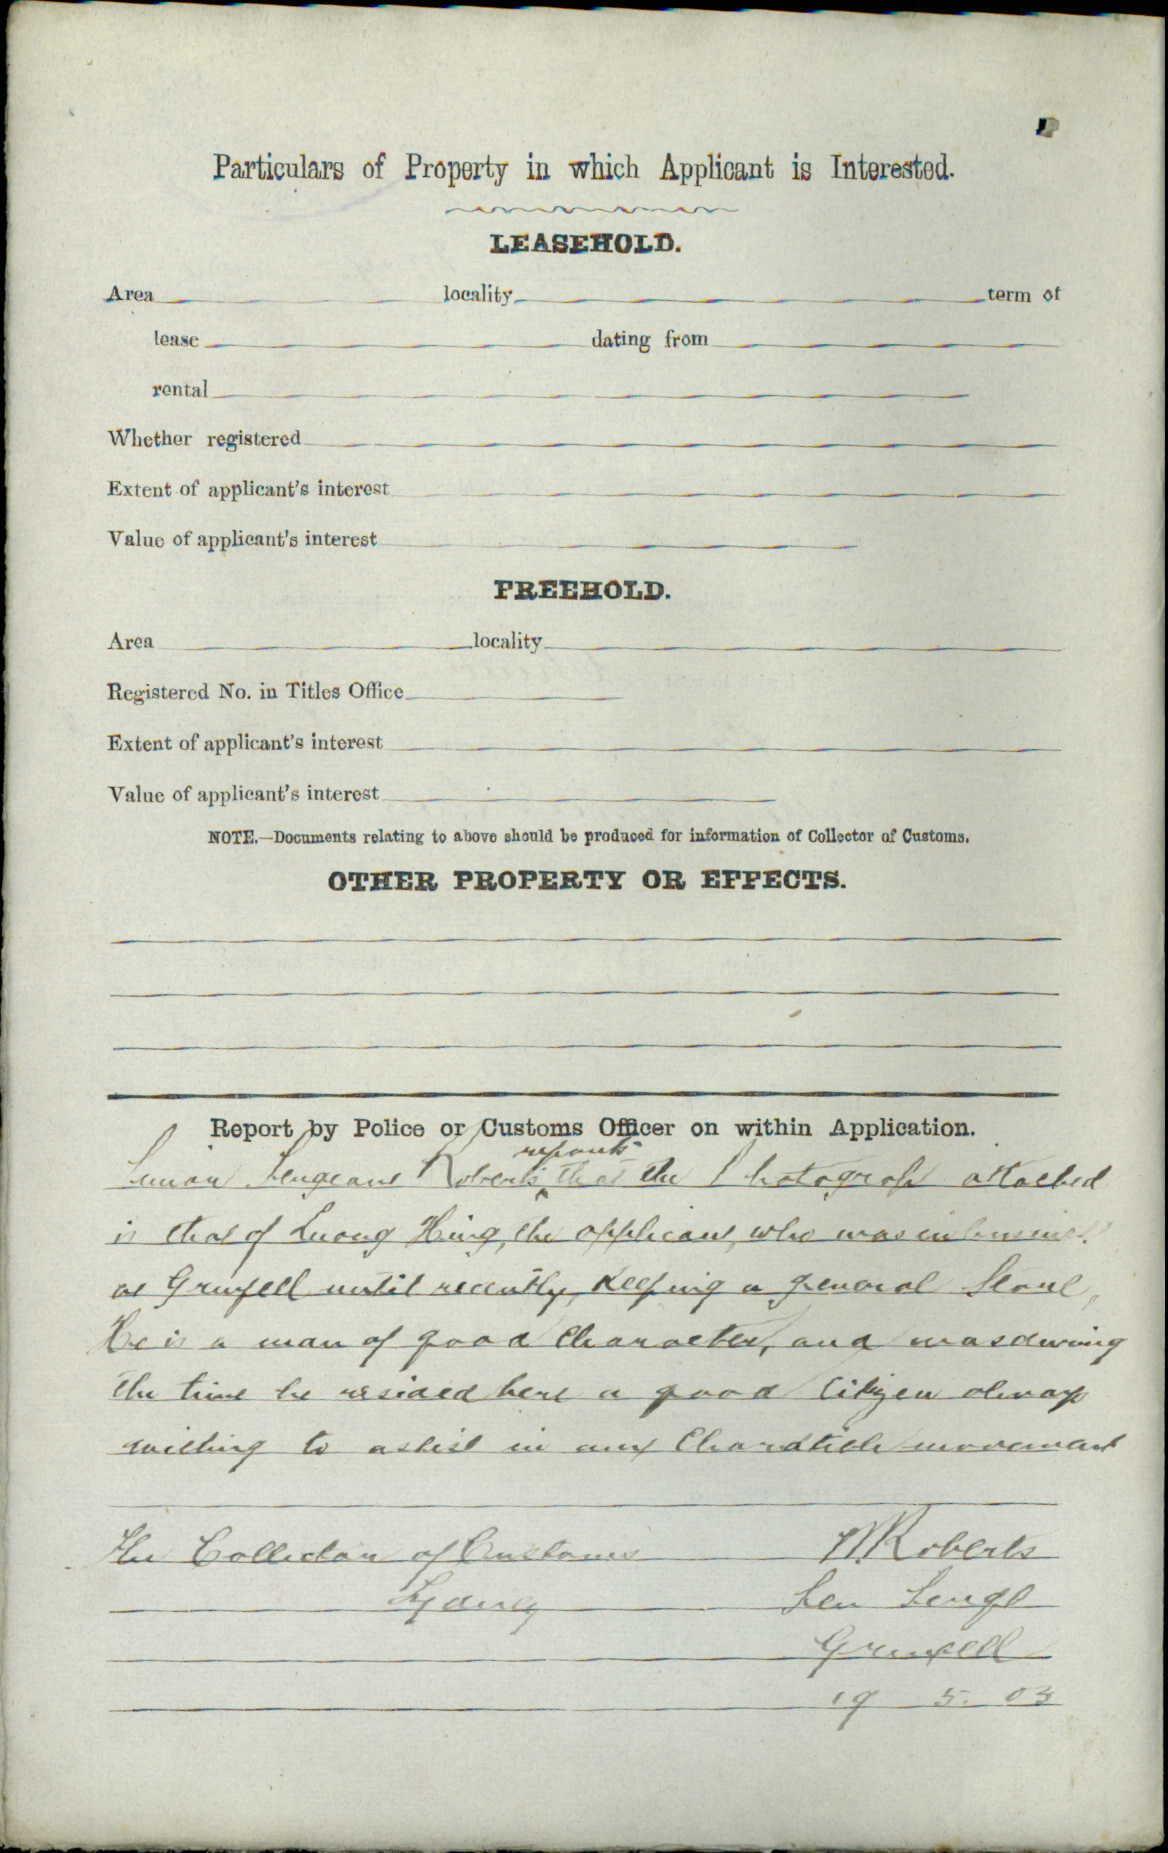 Particulars of Property in which Applicant is Interested.
LEASEHOLD.
Area locality term of
lease dating from
rental
Whether registered
Extent of applicant's interest
Value of applicant's interest
FREEHOLD.
Area locality
Registered No. in Titles Office
Extent of applicant's interest
Value of applicant's interest
NOTE.—Documents relating to above should be produced for information of Collector of Customs.
OTHER PROPERTY OR EFFECTS.
Report by Police or Customs Officer on within Application.
reports
Senior Sergeant Roberts that the Photograph attached
is that of Luong Hing, the applicant, who was in business
at Grenfell until recently, Keeping a general Store,
He is a man of good Character, and was during
the time he resided here a good Citizen always
willing to assist in any movement
The Collector of Customs W. Roberts
Sydney Sen Sergt
Grenfell
19 5. 03